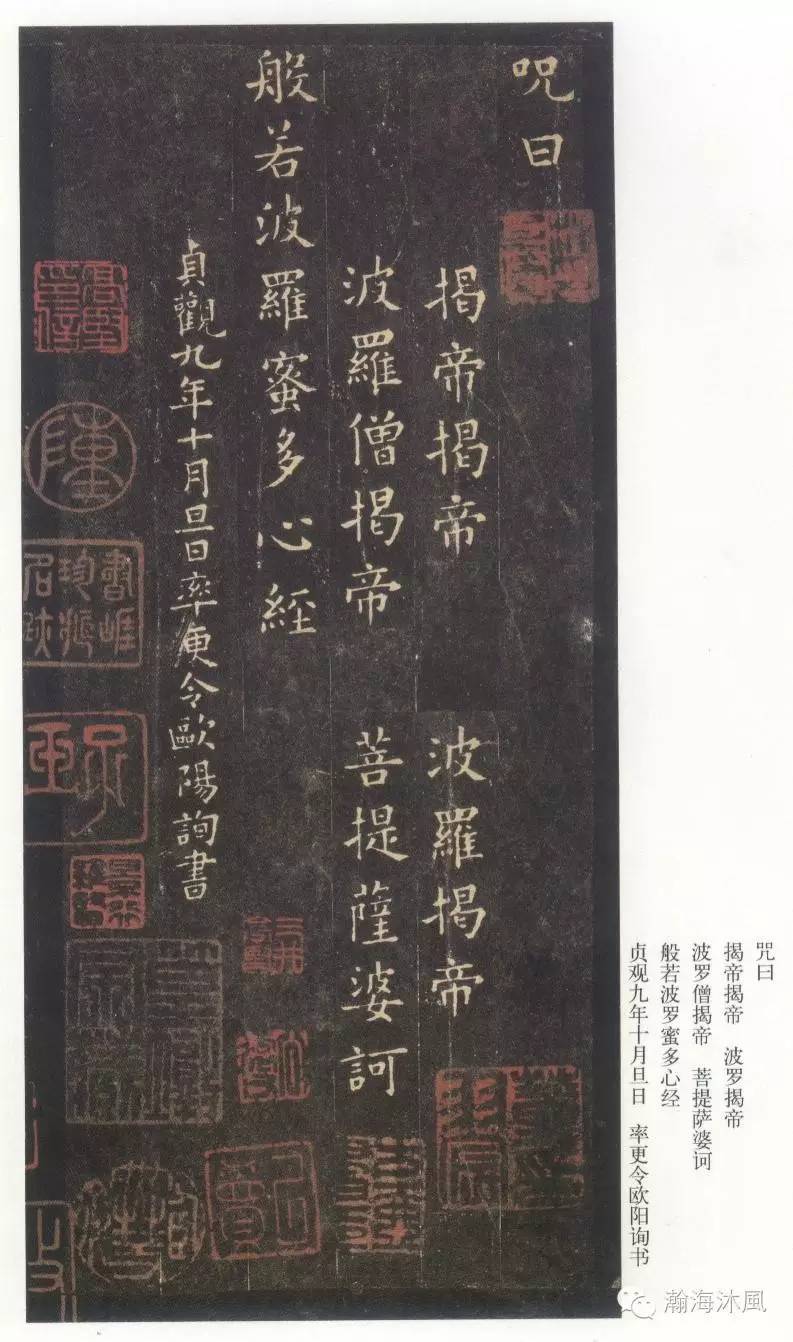 咒曰
揭帝揭帝 波羅揭帝
波羅僧揭帝 菩提薩婆訶
般若波羅蜜多心經
貞觀九年十月旦日率更令歐陽詢書
咒曰
揭帝揭帝 波罗揭帝
波罗僧揭帝 菩提萨婆诃
般若波罗蜜多心经
贞观九年十月旦日 率更令欧阳询书
瀚海沐風